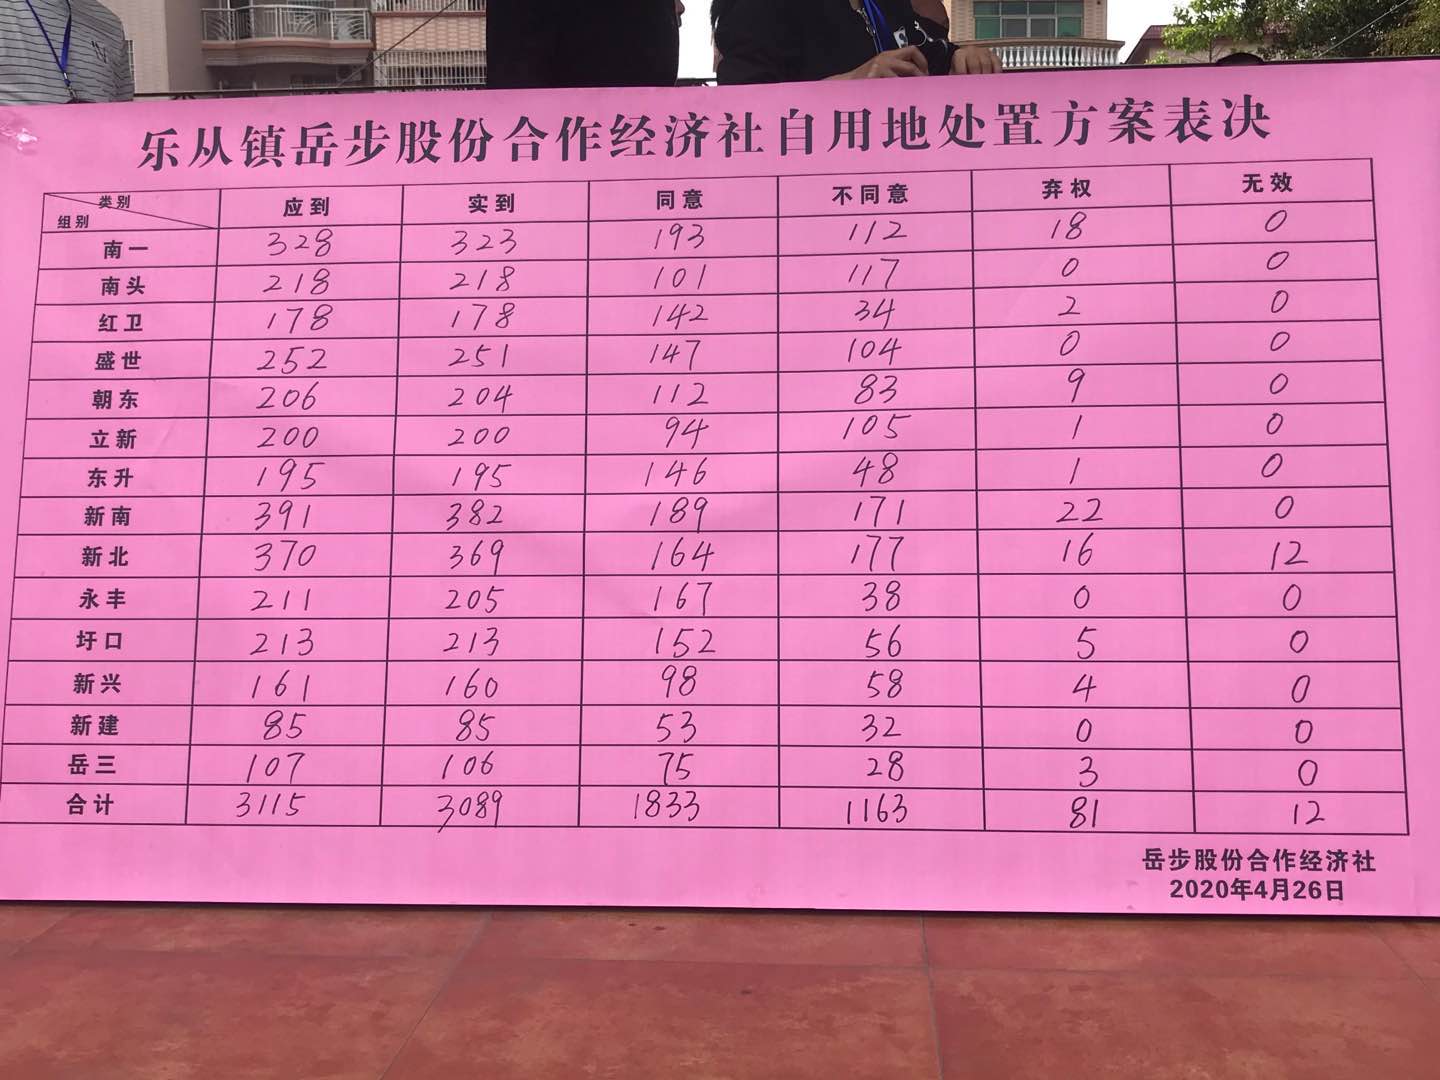 乐从镇岳步股份合作经济社自用地处置方案表决
类别 组别 应到 实到 同意 不同意 弃权 无效
南一 328 323 193 112 18 0
南头 218 218 101 117 0 0
红卫 178 178 142 34 2 0
盛世 252 251 147 104 0 0
朝东 206 204 112 83 9 0
立新 200 200 94 105 1 0
东升 195 195 146 48 1 0
新南 391 382 189 171 22 0
新北 370 369 164 177 16 12
永丰 211 205 167 38 0 0
圩口 213 213 152 56 5 0
新兴 161 160 98 58 4 0
新建 85 85 53 32 0 0
岳三 107 106 75 28 3 0
合计 3115 3089 1833 1163 81 12
岳步股份合作经济社
2020年4月26日